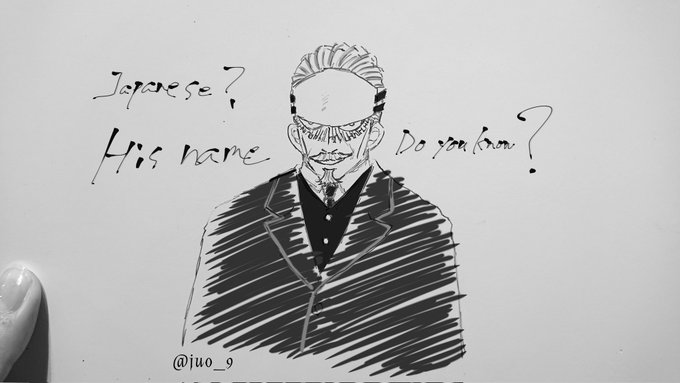 Japanese?
His name
Do you know?
@juo_9